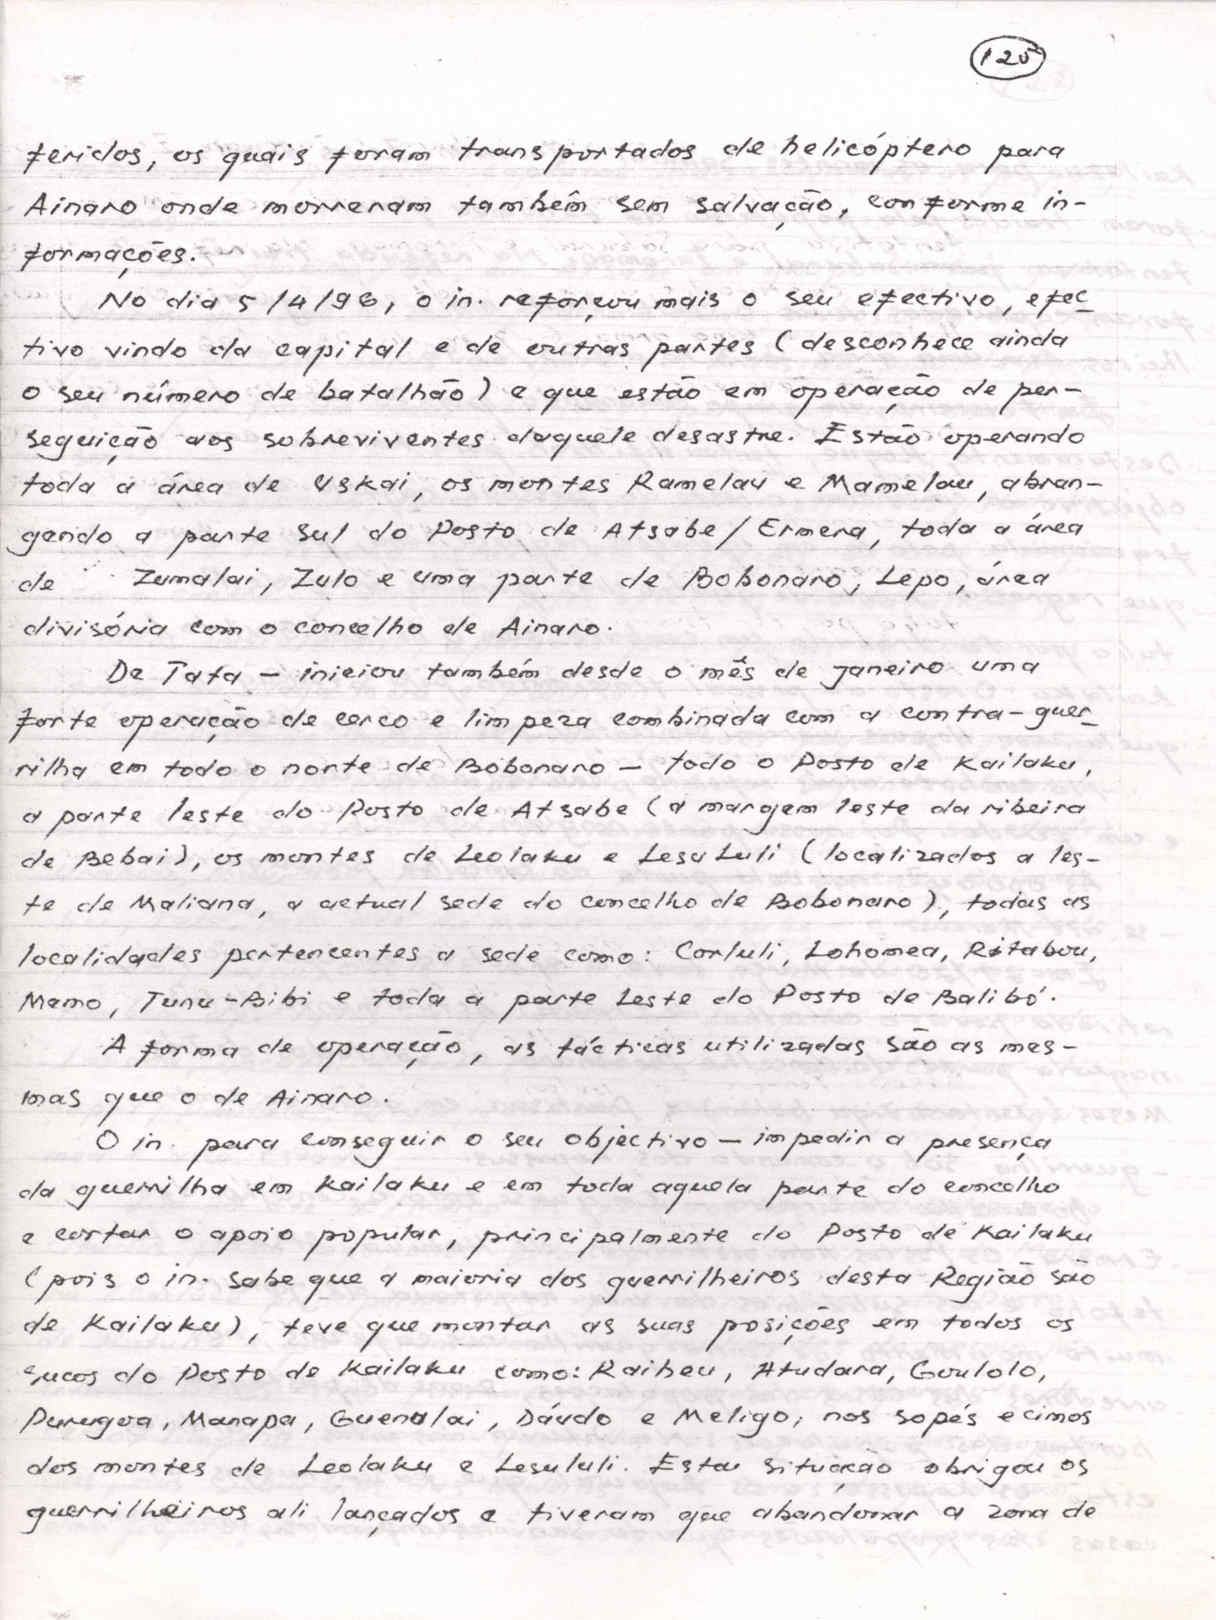 125
feridos, os quais foram transportados de helicóptero para
Ainaro onde morreram também sem salvação, conforme in-
formações.
No dia 5/4/96, o in. reforçou mais o seu efectivo, efec-
tivo vindo da capital e de outras partes (desconhece ainda
o seu número de batalhão) e que estão em operação de per-
seguição aos sobreviventes daquele desastre. Estão operando
toda a área de Uskai, os montes Ramelau e Mamelau, abran-
gendo a parte sul do Posto de Atsabe/Ermera, toda a área
de Zumalai, Zulo e uma parte de Bobonaro, Lepo, área
divisória com o concelho de Ainaro.
De Tata - iniciou também desde o mês de janeiro uma
forte operação de cerco e limpeza combinada com a contra-guer-
rilha em todo o norte de Bobonaro - todo o Posto de Kailaku,
a parte leste do Posto de Atsabe (a margem leste da ribeira
de Bebai), os montes de Leolaku e Lesululi (localizados a les-
te de Maliana, a actual sede do concelho de Bobonaro), todas as
localidades pertencentes a sede como: Corluli, Lohomea, Ritabou,
Memo, Tunu-Bibi e toda a parte leste do Posto de Balibó.
A forma de operação, as tácticas utilizadas são as mes-
mas que o de Ainaro.
O in. para conseguir o seu objectivo - impedir a presença
da guerrilha em Kailaku e em toda aquela parte do concelho
e cortar o apoio popular, principalmente do Posto de Kailaku
(pois o in. sabe que a maioria dos guerrilheiros desta Região são
de Kailaku), teve que montar as suas posições em todos os
sucos do Posto de Kailaku como: Raiheu, Atudara, Goulolo,
Purugoa, Manapa, Guenulai, Dáudo e Meligo, nos sopés e cimos
dos montes de Leolaku e Lesululi. Esta situação obrigou os
guerrilheiros ali lançados e tiveram que abandonar a zona de